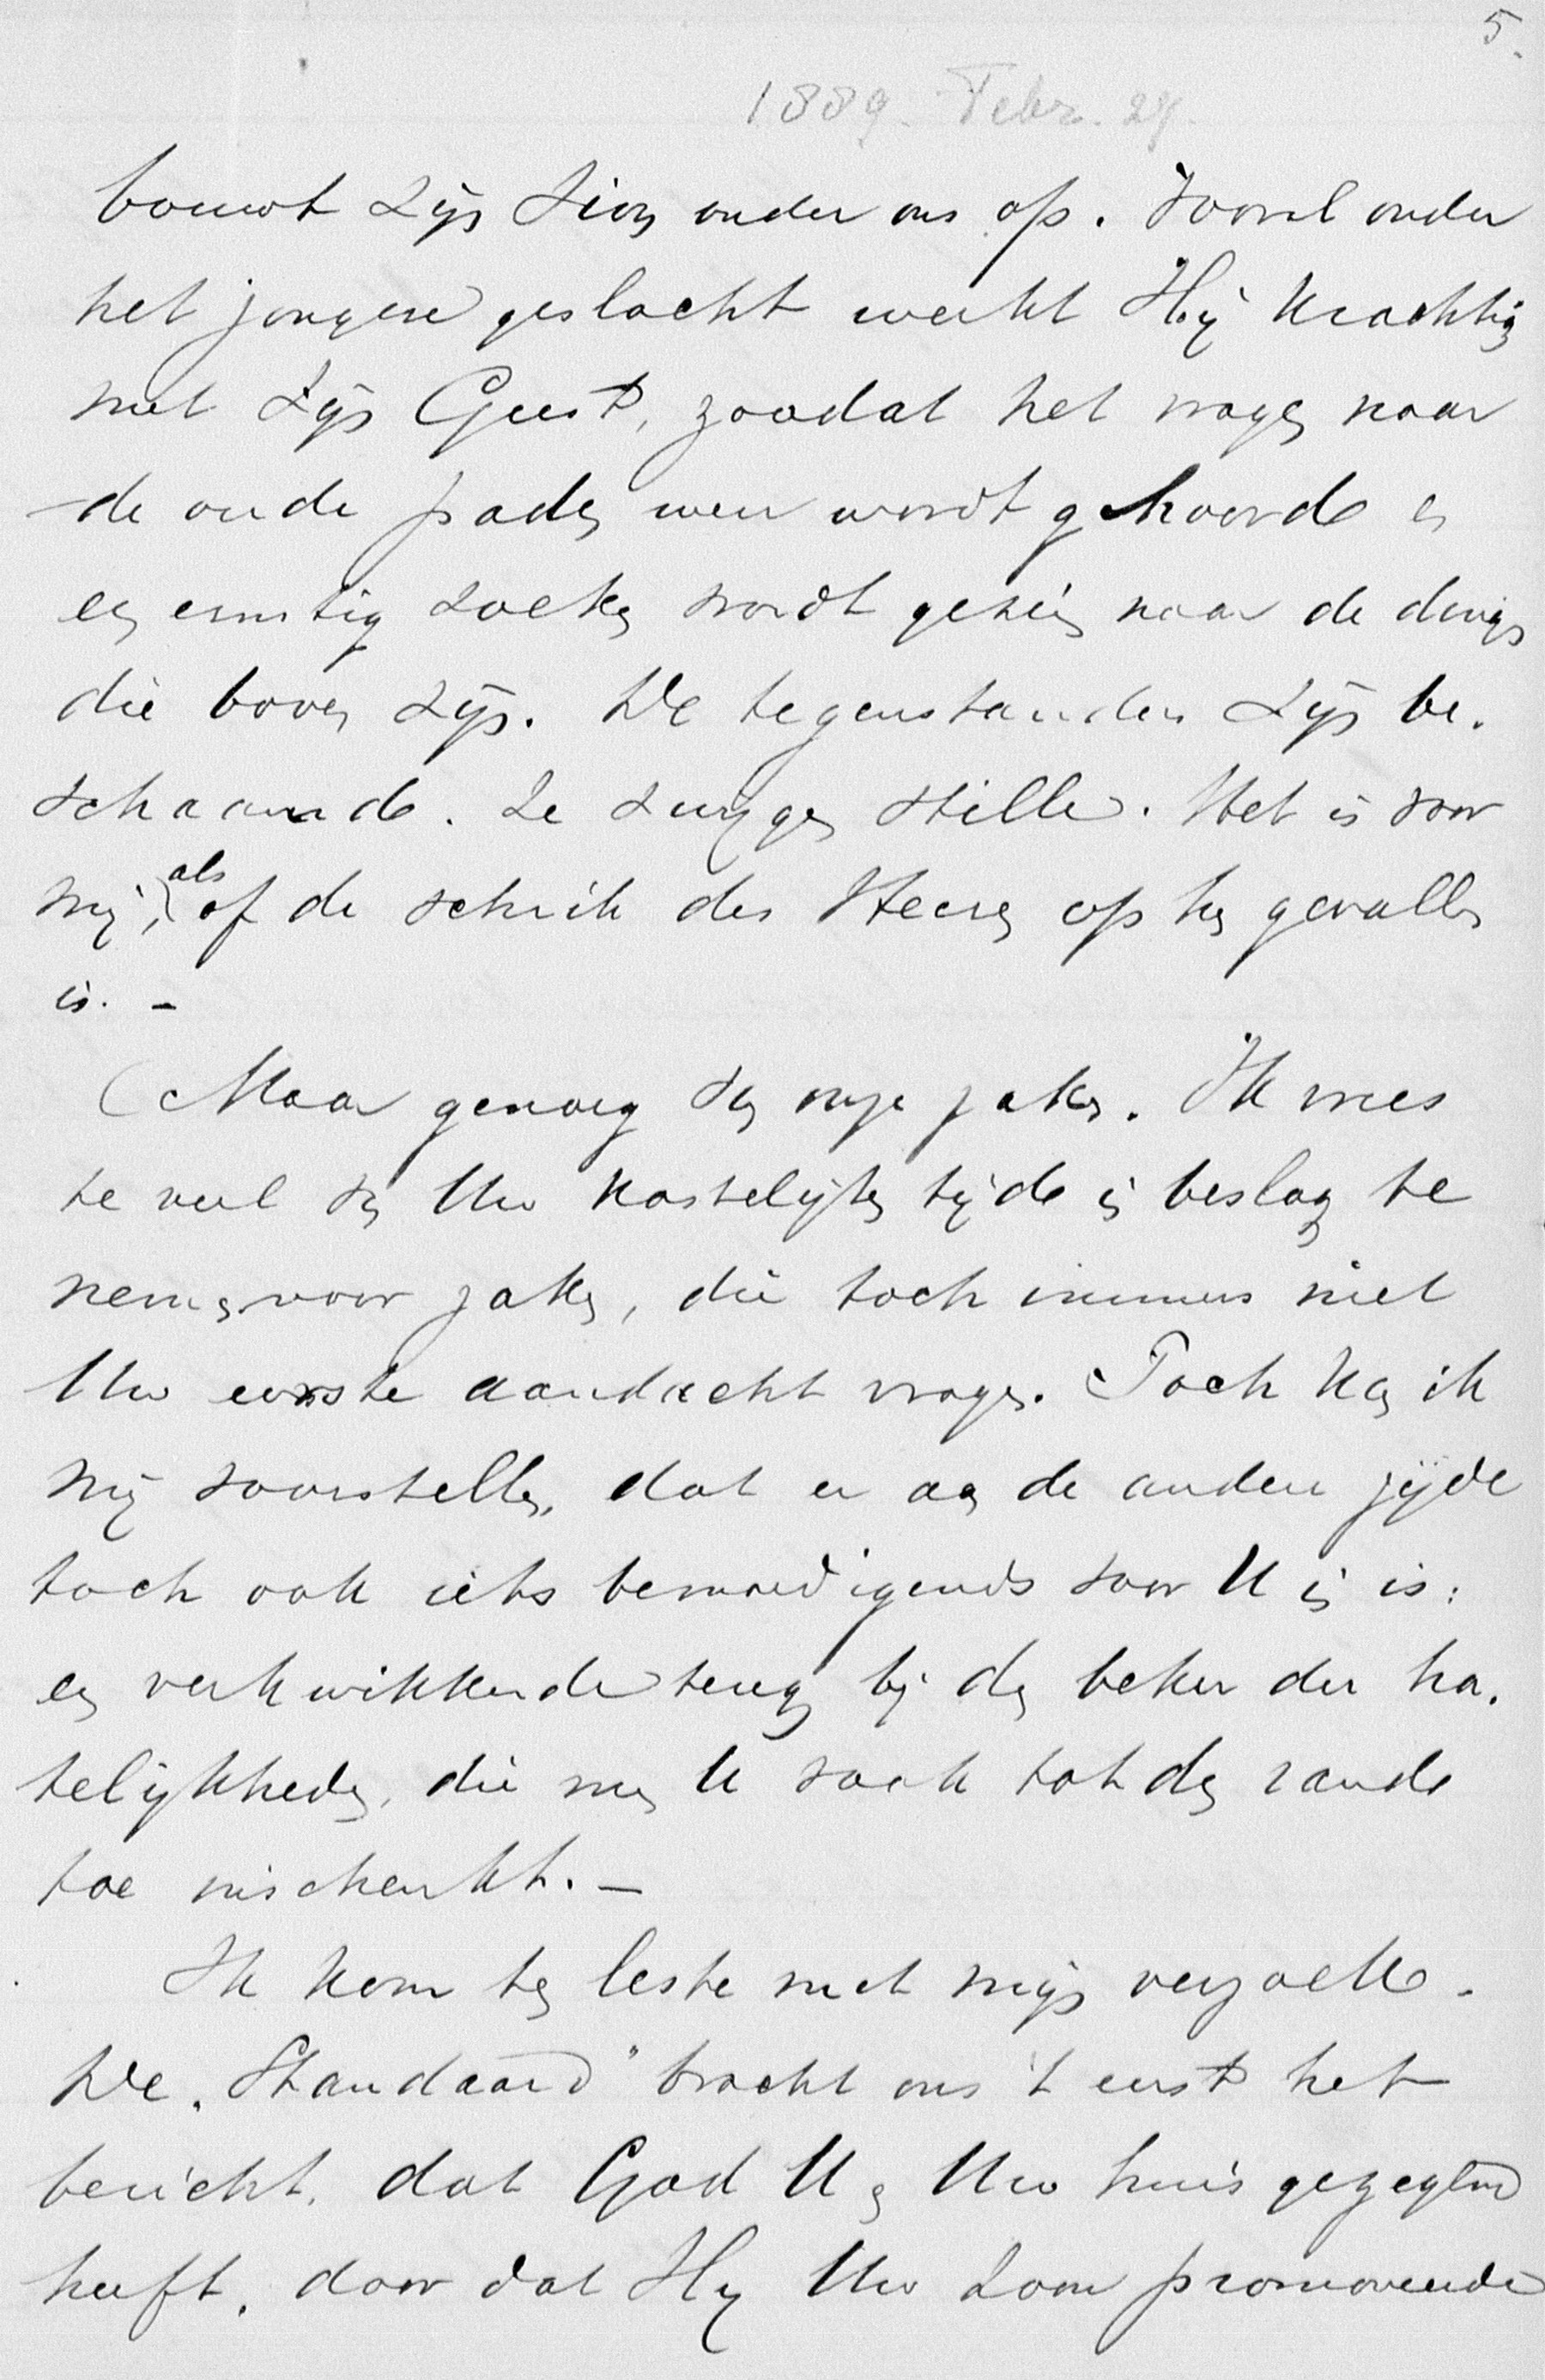 5.
1889. Febr. 27.
bouwt Zijn Sion onder ons op. Vooral onder
het jongere geslacht werkt Hij krachtig
met Zijn Geest, zoodat het vragen naar
de oude paden weer wordt gehoord en
een ernstig zoeken wordt gezien naar de dingen
die boven zijn. De tegenstanders zijn be-
schaamd. Ze zwijgen stille. Het is voor
mij, als of de schrik des Heeren op hen gevallen
is. -
Maar genoeg van onze zaken. Ik vrees
te veel van Uw kostelijken tijd in beslag te
nemen voor zaken, die toch immers niet
Uw eerste aandacht vragen. Toch kan ik
mij voorstellen, dat er aan de andere zijde
toch ook iets bemoedigends voor U in is:
een verkwikkende teug bij den beker der ha-
telijkheden, die men U vaak tot den rand
toe inschenkt. -
Ik kom ten leste met mijn verzoek.
De "Standaard" bracht ons 't eerst het
bericht, dat God U en Uw huis gezegend
heeft, door dat Hij Uw zoon promoveerde